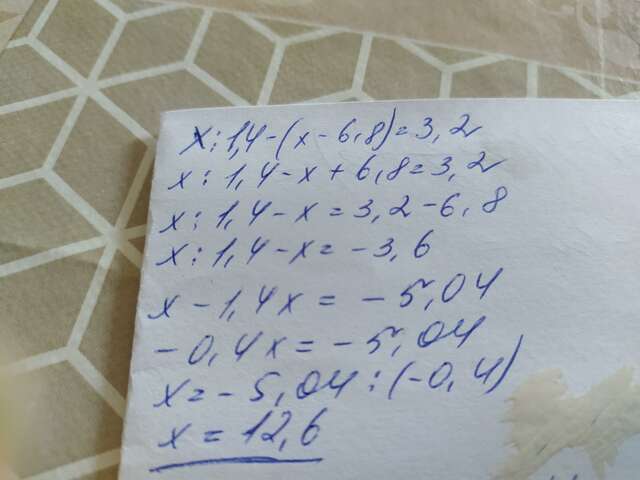 x:1,4-(x-6,8)=3,2
x:1,4-x+6,8=3,2
x:1,4-x=3,2-6,8
x:1,4-x=-3,6
x-1,4x=-5,04
-0,4x=-5,04
x=-5,04:(-0,4)
x=12,6